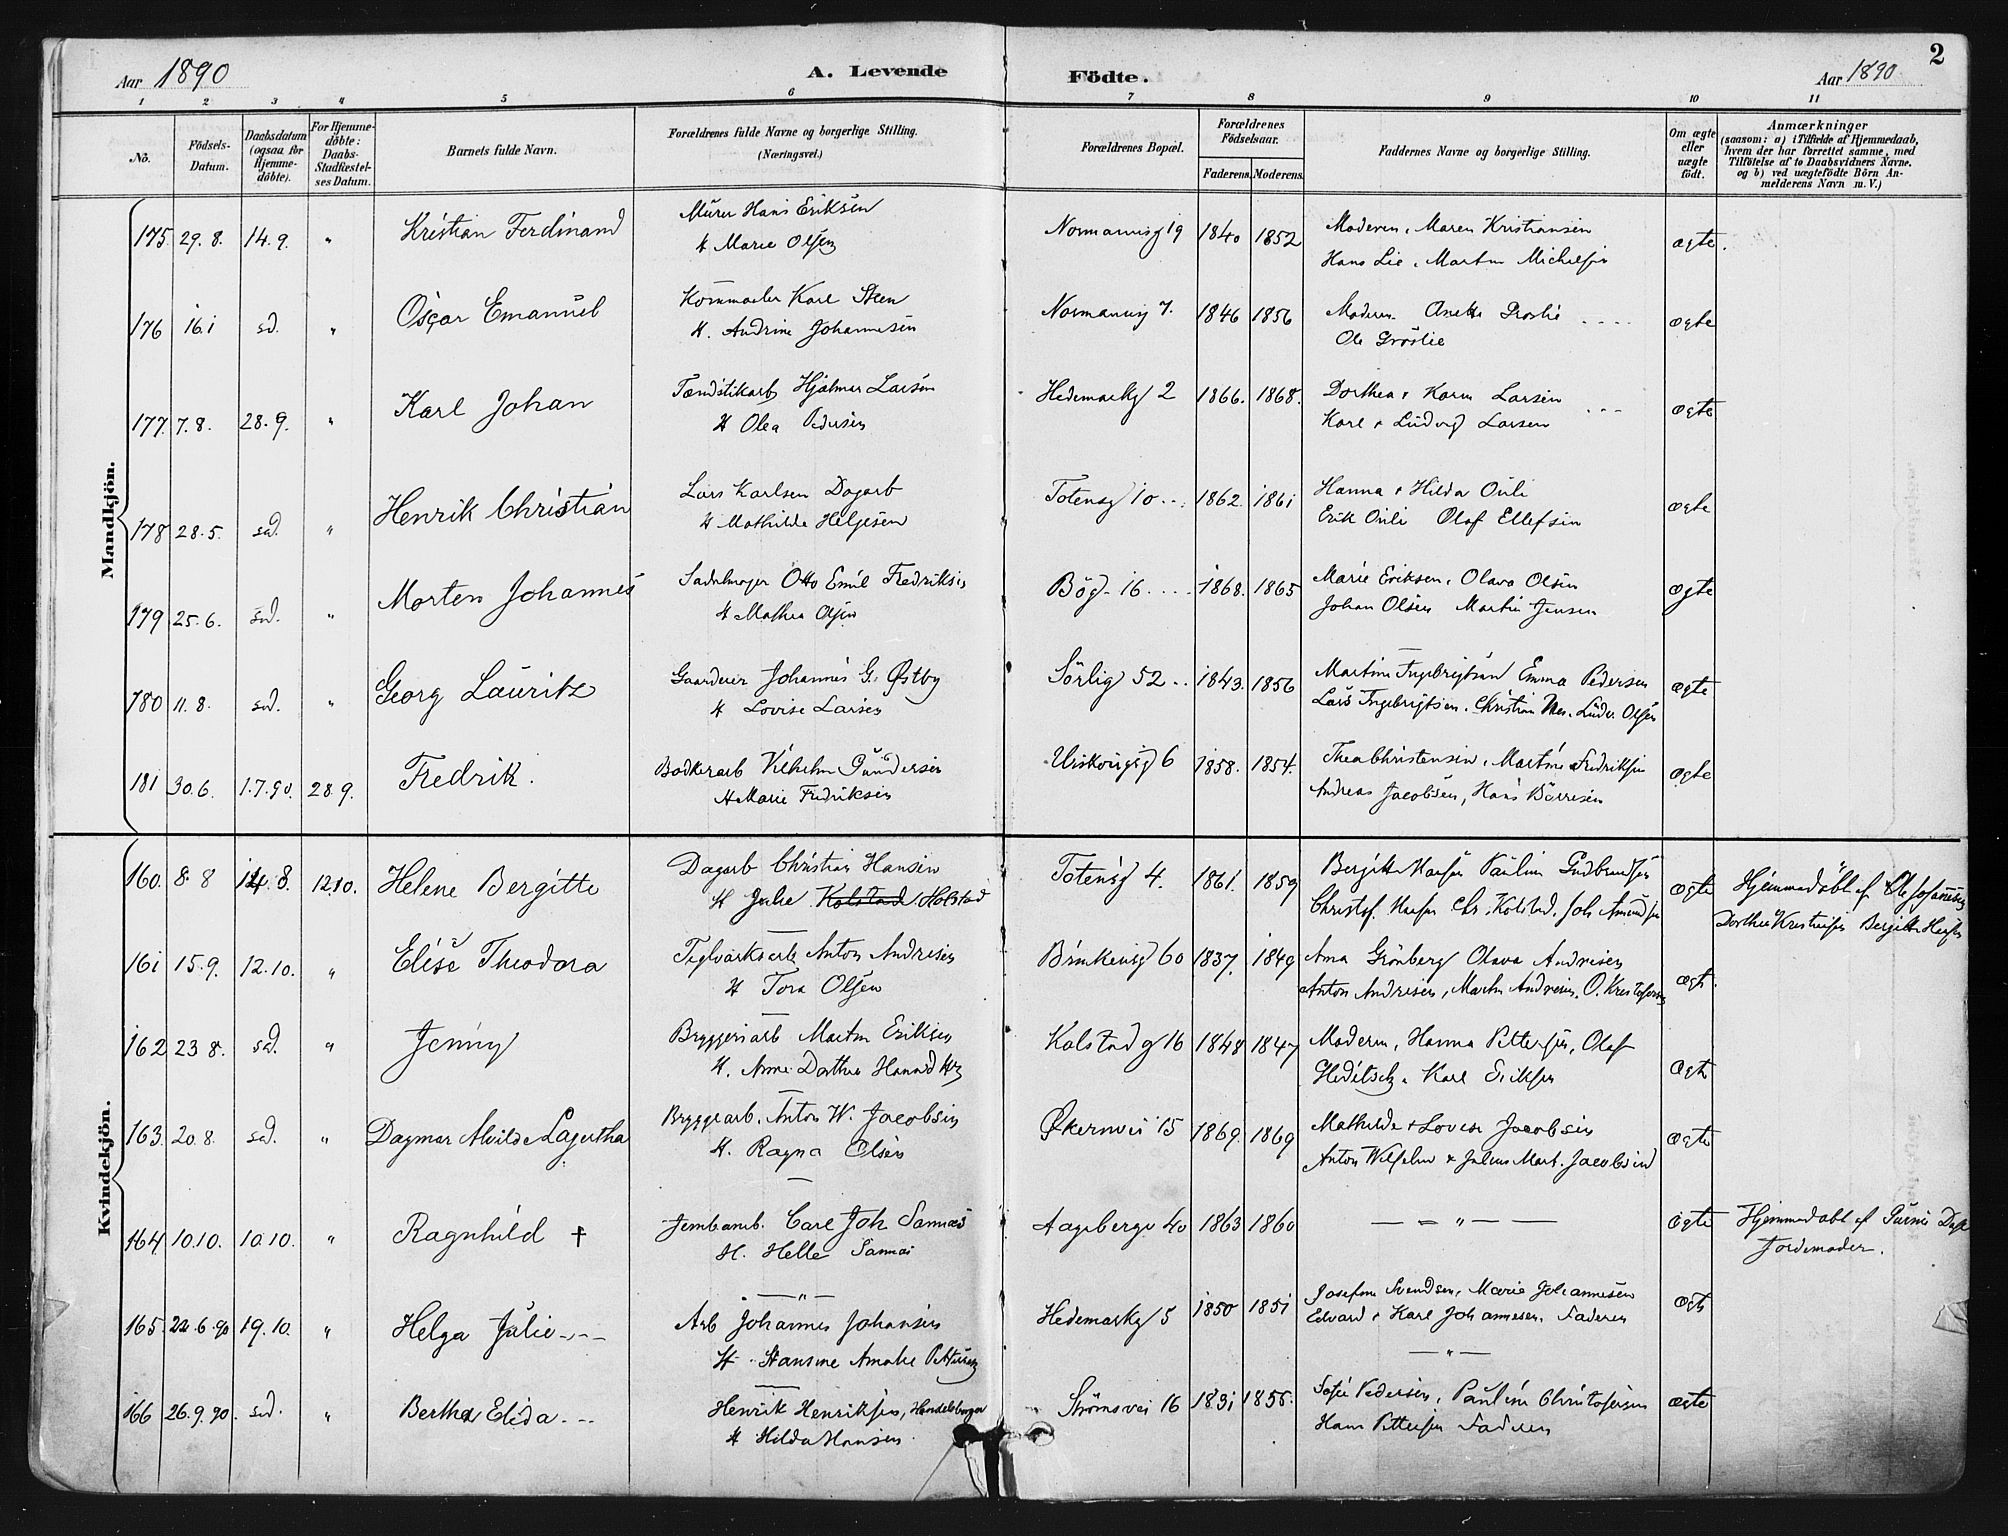 Aar 1890 A. Levende Födte. Aar 1890 2
1 2 3 4 5 6 7 8 9 10 11
No. Födsels-Datum. Daabsdatum (ogsaa for Hjemme-döbte). For Hjemme-döbte: Daabs-Stadfæstel-ses Datum. Barnets fulde Navn. Forældrenes fulde Navne og borgerlige Stilling. (Næringsvei.) Forældrenes Bopæl. Forældrenes Födselsaar. Faderens. Moderens. Faddernes Navne og borgerlige Stilling. Om ægte eller uægte födt. Anmærkninger (saasom: a) i Tilfælde af Hjemmedaab, hvem der har forrettet samme, med Tilföielse af to Daabsvidners Navne. og b) ved uægtefödte Börn An-melderens Navn m. V.)
Mandkjön.
175. 29.8. 14.9. " Kristian Ferdinand Murer Hans Eriksen Normannsg 19 1840 1852 Moderen, Maren Kristiansen ægte.
H Marie Olsen Hans Lie, Martin Michelsen
176 16.1 sd. " Oscar Emanuel Karl Steen Normannsg 7. 1846 1856 Moderen ægte
H. Andrine Johannesen Ole Gröslie
177. 7.8. 28.9. " Karl Johan Tændstikarb Hjalmar Larsen Hedemarkg 2 1866. 1868. Dorthea & Karen Larsen ægte
H Olea Pedersen Karl & Ludvig Larsen
178 28.5. sd. " Henrik Christian Lars Karlsen Dagarb Totensg 10 1862. 1861 Hanna & Hilda ægte
H Mathilde Helgesen Erik Olaf Ellefsen
179 25.6. sd. " Morten Johannes Sadelmager Otto Emil Fredriksen Bög. 16 1868. 1865 Marie Eriksen, Olava Olsen ægte
H Mathea Olsen Johan Olsen Martin Jensen
180 11.8. sd. " Georg Lauritz Gaardeier Johannes G. Østby Sörlig 52 1843. 1856 Martine Ingebrigtsen Emma Pedersen ægte
H Lovise Larsen Lars Ingebrigtsen. Christian Olsen
181 30.6. 1.7.90. 28.9. Fredrik. Bödkerarb Vilhelm Gundersen 6 1858. 1854. Thea Christensen, Martine Fredriksen ægte
H Marie Fredriksen Andreas Jacobsen, Hans Börresen
Kvindekjön.
160. 8.8 14.8. 12.10. Helene Bergitte Dagarb Christian Hansen Totensg 4. 1861. 1859 Bergitte Hansen Pauline Gudbrandsen ægte Hjemmedöbt af Ole Johannesen
H Julie Kolstad Holstad Christof. Hansen Chr. Kolstad, Joh Amundsen Dorthea Kristensen Bergitte Hansen
161 15.9. 12.10. " Elise Theodora Teglværksarb Anton Andresen Brinkensg 60 1837. 1849 Ana Grönberg Olava Andresen ægte.
H Tora Olsen Anton Andresen, Martin Andresen. O. Kristofersen
162 23 8. sd. " Jenny Bryggeriarb Martin Eriksen Kolstadg 16 1848 1847 Moderen, Hanna Pettersen, Olaf ægte
H. Anne Dorthea Karl Eriksen
163. 20.8. sd. " Dagmar Alvilde Lagertha Bryggerarb. Anton W. Jacobsen Økernvei 15 1869. 1869 Mathilde & Lovise Jacobsen ægte
H. Ragna Olsen Anton Wilhelm & Julius Mart. Jacobsen
164 10.10. 10.10. " Ragnhild † Jernbanarb. Carl Joh Sannæs Aagebergv 40 1863 1860 — — " — — ægte Hjemmedöbt af
H. Helle Sannæs Jordemoder.
165. 22.6.90 19.10. " Helga Julie Arb Johannes Johansen Hedemarkg 5 1850 1851 Josefine Svendsen, Marie Johannesen ægte
H. Hansine Amalie Pettersen Edvard & Karl Johannesen. Faderen
— " —
166 26.9.90. sd. " Bertha Elida Henrik Henriksen, Handelsborger Strömsvei 16 1831 1855. Sofie Pedersen, Pauline Christofersen ægte
H Hilda Hansen Hans Pettersen Faderen